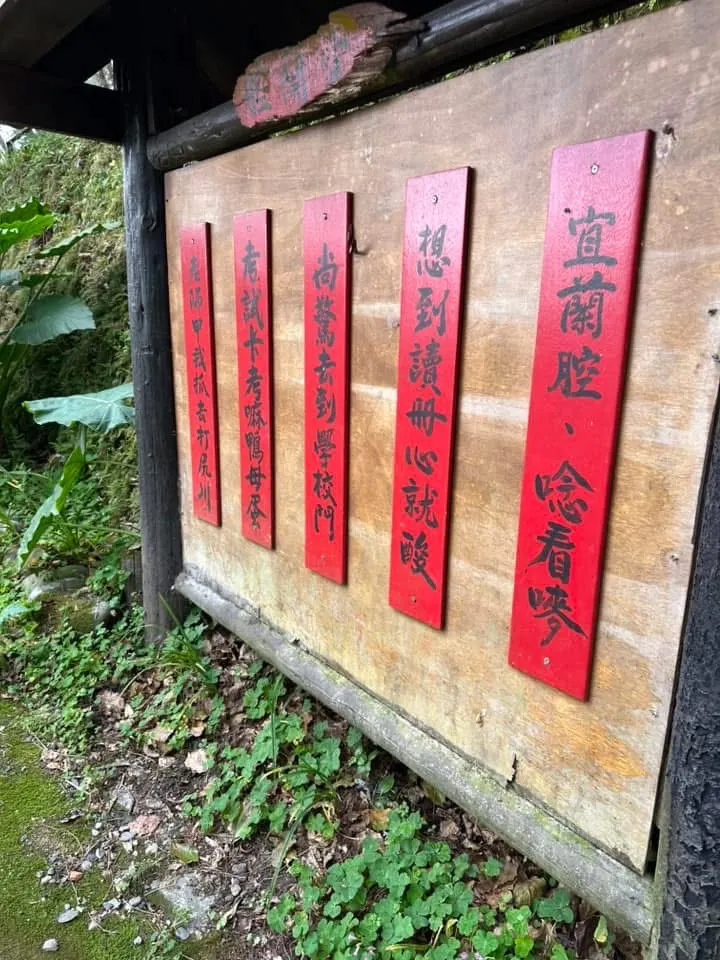 宜蘭腔、唸看嘜
想到讀冊心就酸
尚驚去到學校門
考試卡考嘛鴨母蛋
甲我抓去打尻川